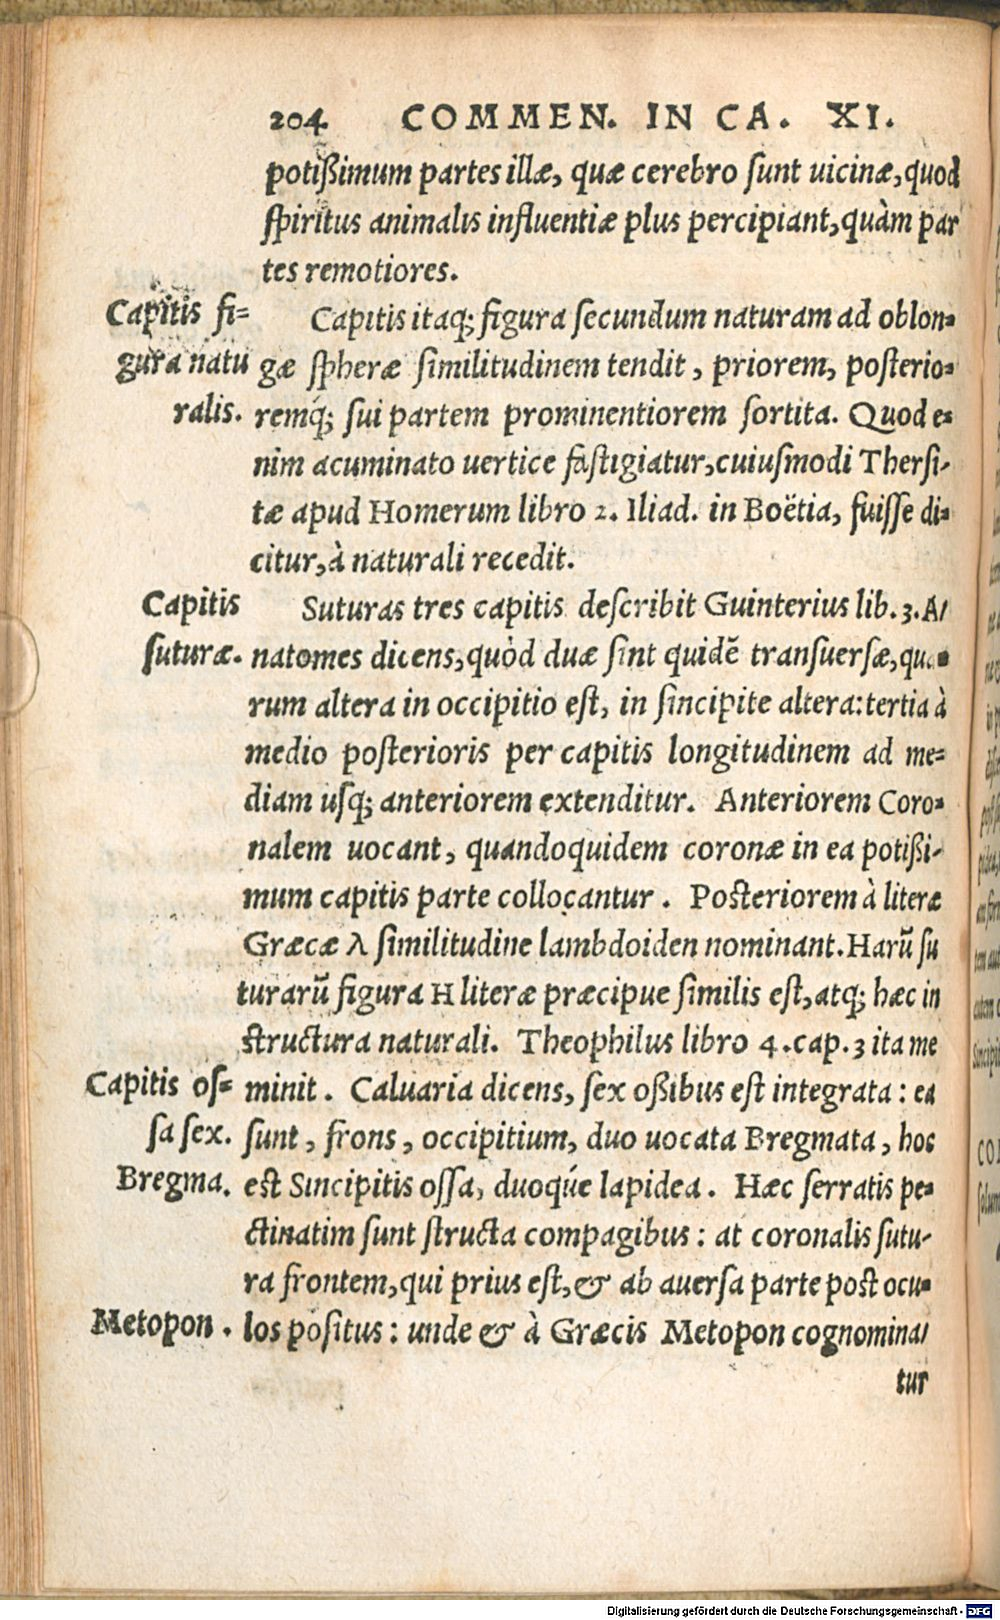 204 COMMEN. IN CA. XI.
potißimum partes illæ, quæ cerebro sunt uicinæ, quod
spiritus animalis influentiæ plus percipiant, quàm par
tes remotiores.
Capitis fi=
gura natu
ralis.
Capitis itaq; figura secundum naturam ad oblon=
gæ spheræ similitudinem tendit, priorem, posterio=
remq́; sui partem prominentiorem sortita. Quod e=
nim acuminato uertice fastigiatur, cuiusmodi Thersi-
tæ apud Homerum libro 2. Iliad. in Boëtia, fuisse di=
citur, à naturali recedit.
Capitis
suturæ.
Suturas tres capitis describit Guinterius lib. 3. A/
natomes dicens, quòd duæ sint quidē transuersæ, qua=
rum altera in occipitio est, in sincipite altera: tertia à
medio posterioris per capitis longitudinem ad me=
diam usq; anteriorem extenditur. Anteriorem Coro=
nalem uocant, quandoquidem coronæ in ea potißi-
mum capitis parte collocantur. Posteriorem à literæ
Græcæ λ similitudine lambdoiden nominant. Harū su
turarū figura H literæ præcipue similis est, atq; hæc in
structura naturali. Theophilus libro 4. cap. 3 ita me
Capitis os=
sa sex.
Bregma.
minit. Caluaria dicens, sex oßibus est integrata: ea
sunt, frons, occipitium, duo uocata Bregmata, hoc
est Sincipitis ossa, duoq́ue lapidea. Hæc serratis pe=
ctinatim sunt structa compagibus: at coronalis sutu-
ra frontem, qui prius est, & ab auersa parte post ocu=
Metopon.
los positus: unde & à Græcis Metopon cognomina/
tur
Digitalisierung gefördert durch die Deutsche Forschungsgemeinschaft - DFG